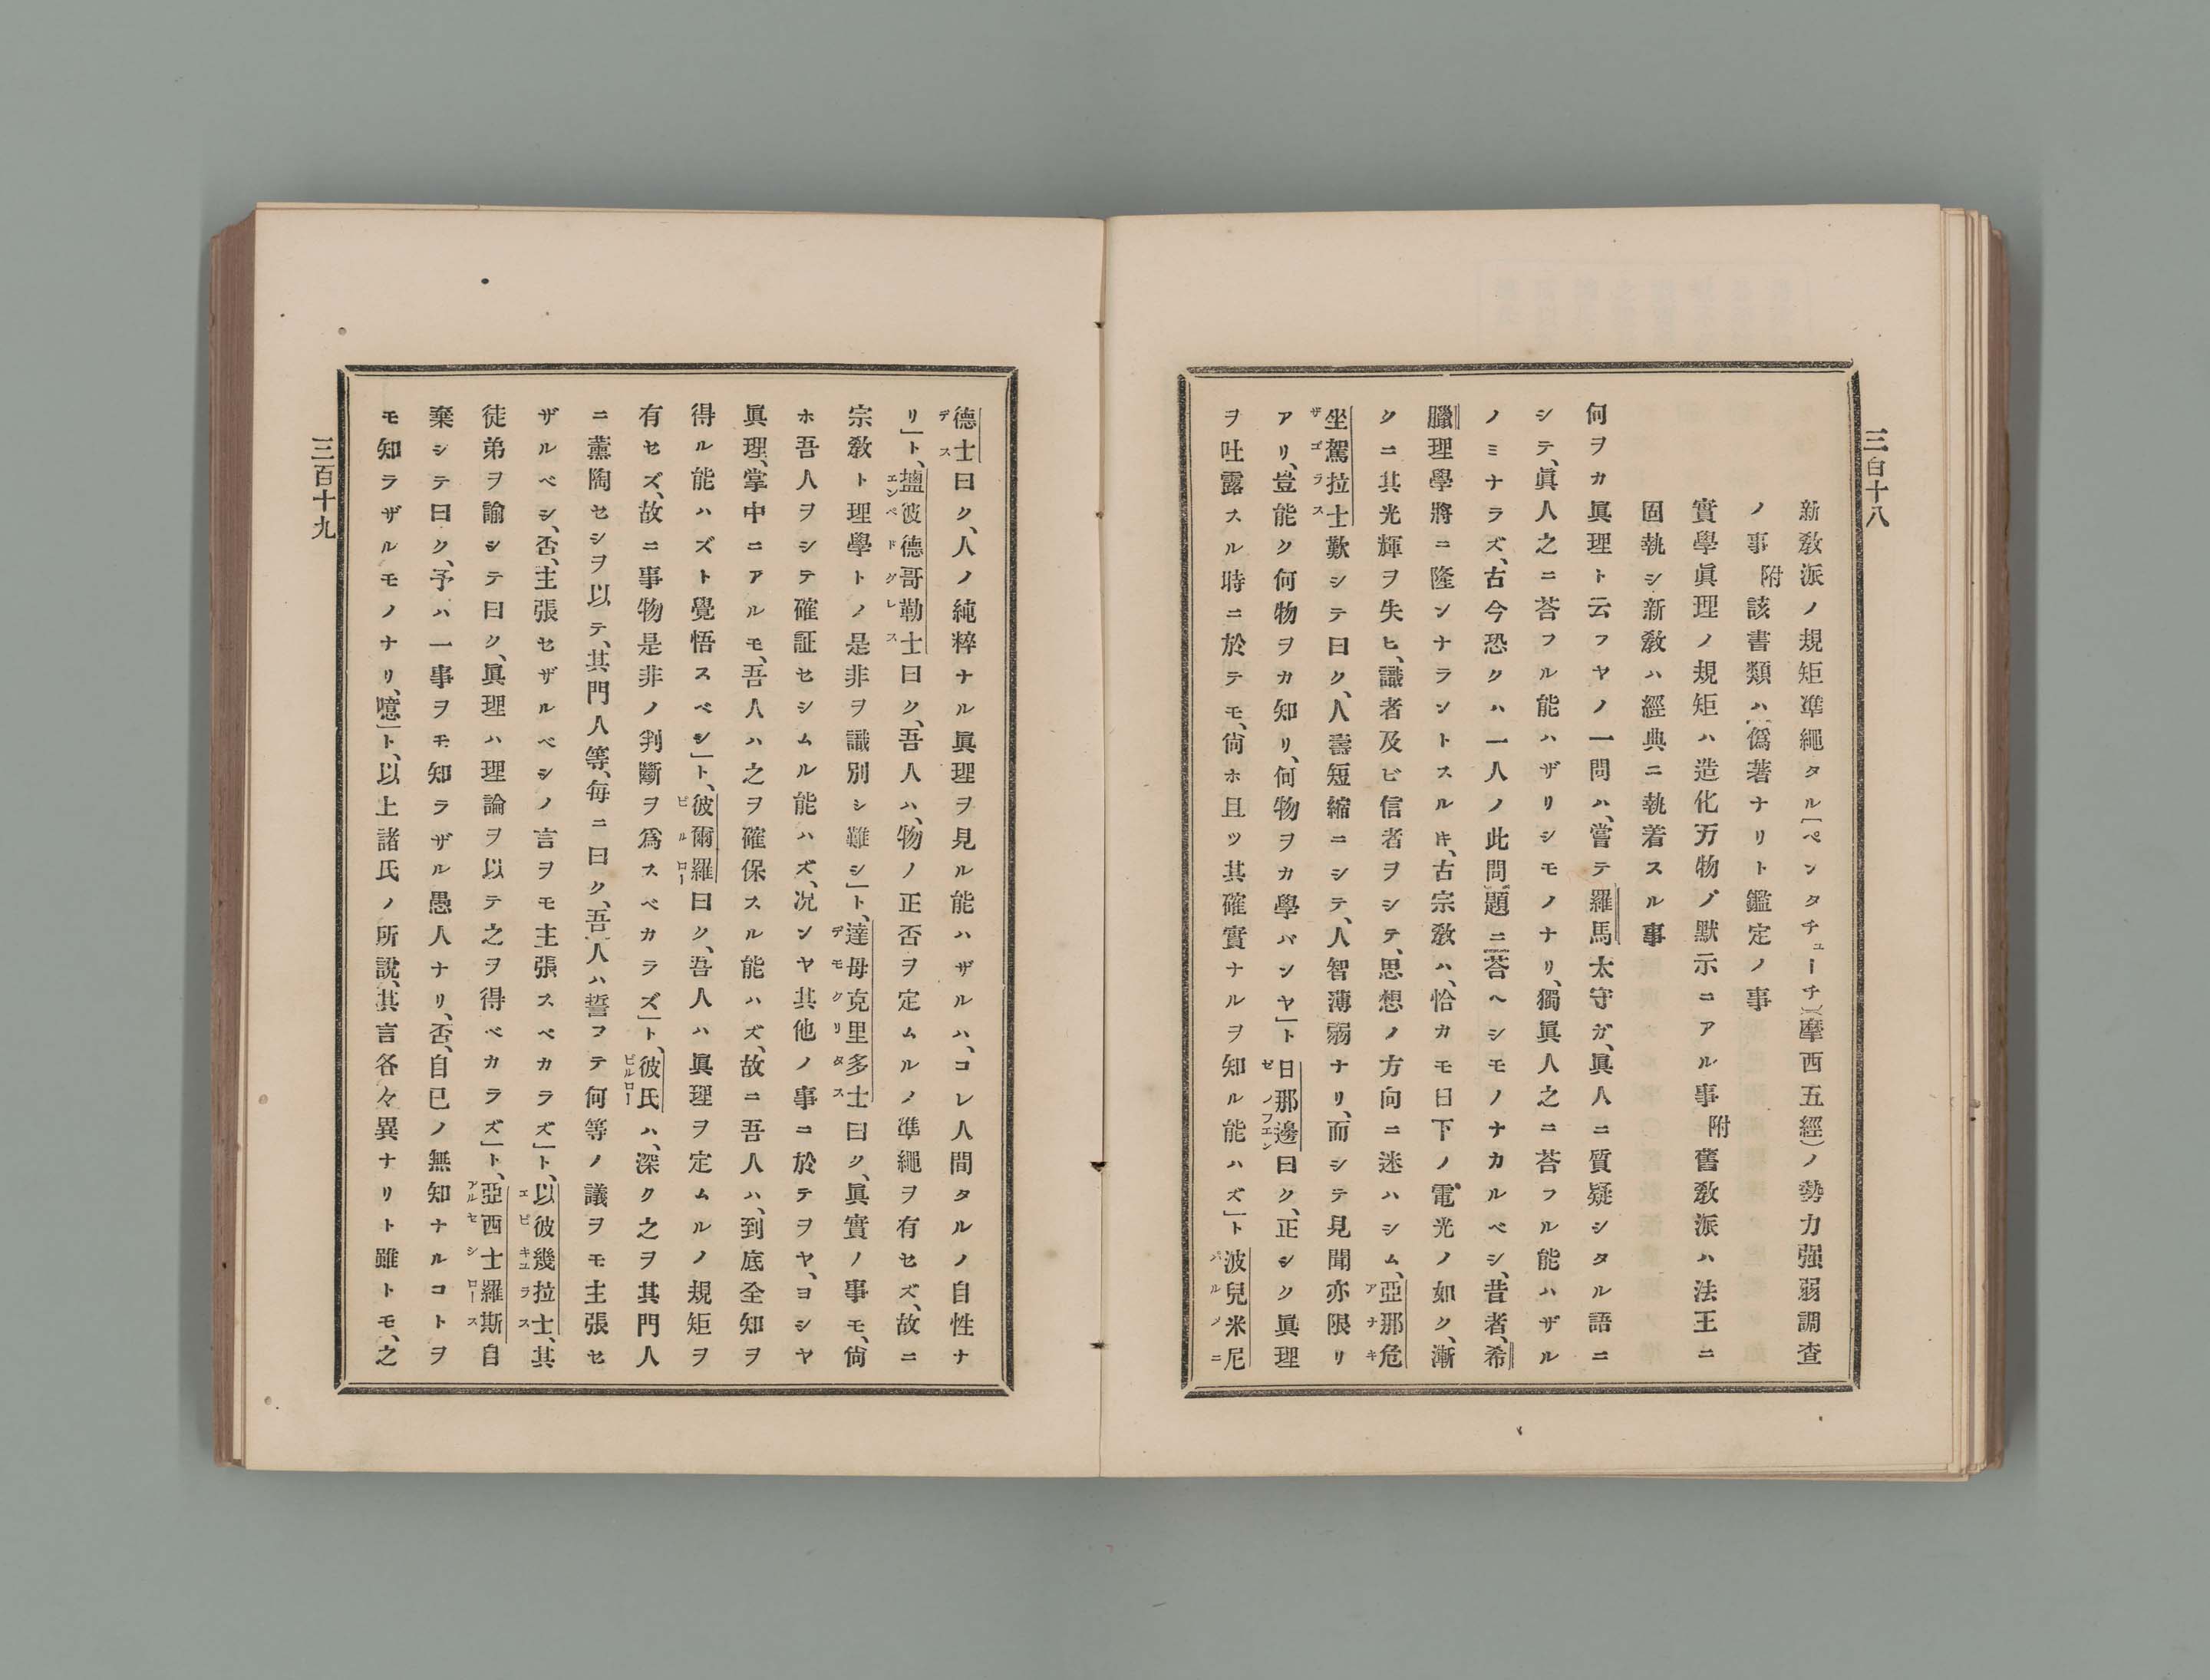 三百十八
新敎派ノ規矩準繩タル〔ペンタチューチ〕（摩西五經）ノ勢力强弱調査
ノ事 附 該書類ハ僞著ナリト鑑定ノ事
實學眞理ノ規矩ハ造化万物ノ默示ニアル事 附 舊敎派ハ法王ニ
固執シ新敎ハ經典ニ執着スル事
何ヲカ眞理ト云フヤノ一問ハ、嘗テ羅馬太守ガ、眞人ニ質疑シタル語ニ
シテ、眞人之ニ荅フル能ハザリシモノナリ、獨眞人之ニ荅フル能ハザル
ノミナラズ、古今恐クハ一人ノ此問題ニ荅ヘシモノナカルベシ、昔者、希
臘理學將ニ隆ンナラントスルキ、古宗敎ハ、恰カモ日下ノ電光ノ如ク、漸
クニ其光輝ヲ失ヒ、識者及ビ信者ヲシテ、思想ノ方向ニ迷ハシム、亞那危
アナキ
坐駕拉士歎シテ曰ク、人壽短縮ニシテ、人智薄弱ナリ、而シテ見聞亦限リ
ザゴラス
アリ、豈能ク何物ヲカ知リ、何物ヲカ學バンヤ」ト日那邊曰ク、正シク眞理
ゼノフエン
ヲ吐露スル時ニ於テモ、尙ホ且ツ其確實ナルヲ知ル能ハズ」ト波兒米尼
パルメニ
德士曰ク、人ノ純粹ナル眞理ヲ見ル能ハザルハ、コレ人間タルノ自性ナ
デス
リ」ト、塩彼德哥勒士曰ク、吾人ハ、物ノ正否ヲ定ムルノ準繩ヲ有セズ、故ニ
エンペドクレス
宗敎ト理學トノ是非ヲ識別シ難シ」ト、達母克里多士曰ク、眞實ノ事モ、尙
デモクリタス
ホ吾人ヲシテ確証セシムル能ハズ、况ンヤ其他ノ事ニ於テヲヤ、ヨシヤ
眞理、掌中ニアルモ、吾人ハ之ヲ確保スル能ハズ、故ニ吾人ハ、到底全知ヲ
得ル能ハズト覺悟スベシ」ト、彼爾羅曰ク、吾人ハ眞理ヲ定ムルノ規矩ヲ
ピルロー
有セズ、故ニ事物是非ノ判斷ヲ爲スベカラズ」ト、彼氏ハ、深ク之ヲ其門人
ピルロー
ニ薰陶セシヲ以テ、其門人等、每ニ曰ク、吾人ハ誓フテ何等ノ議ヲモ主張セ
ザルベシ、否、主張セザルベシノ言ヲモ主張スベカラズ」ト、以彼幾拉士、其
エピキユラス
徒弟ヲ諭シテ曰ク、眞理ハ理論ヲ以テ之ヲ得ベカラズ」ト、亞西士羅斯自
アルセシロース
棄シテ曰ク、予ハ一事ヲモ知ラザル愚人ナリ、否、自己ノ無知ナルコトヲ
モ知ラザルモノナリ、噫」ト、以上諸氏ノ所說、其言各々異ナリト雖トモ、之
三百十九